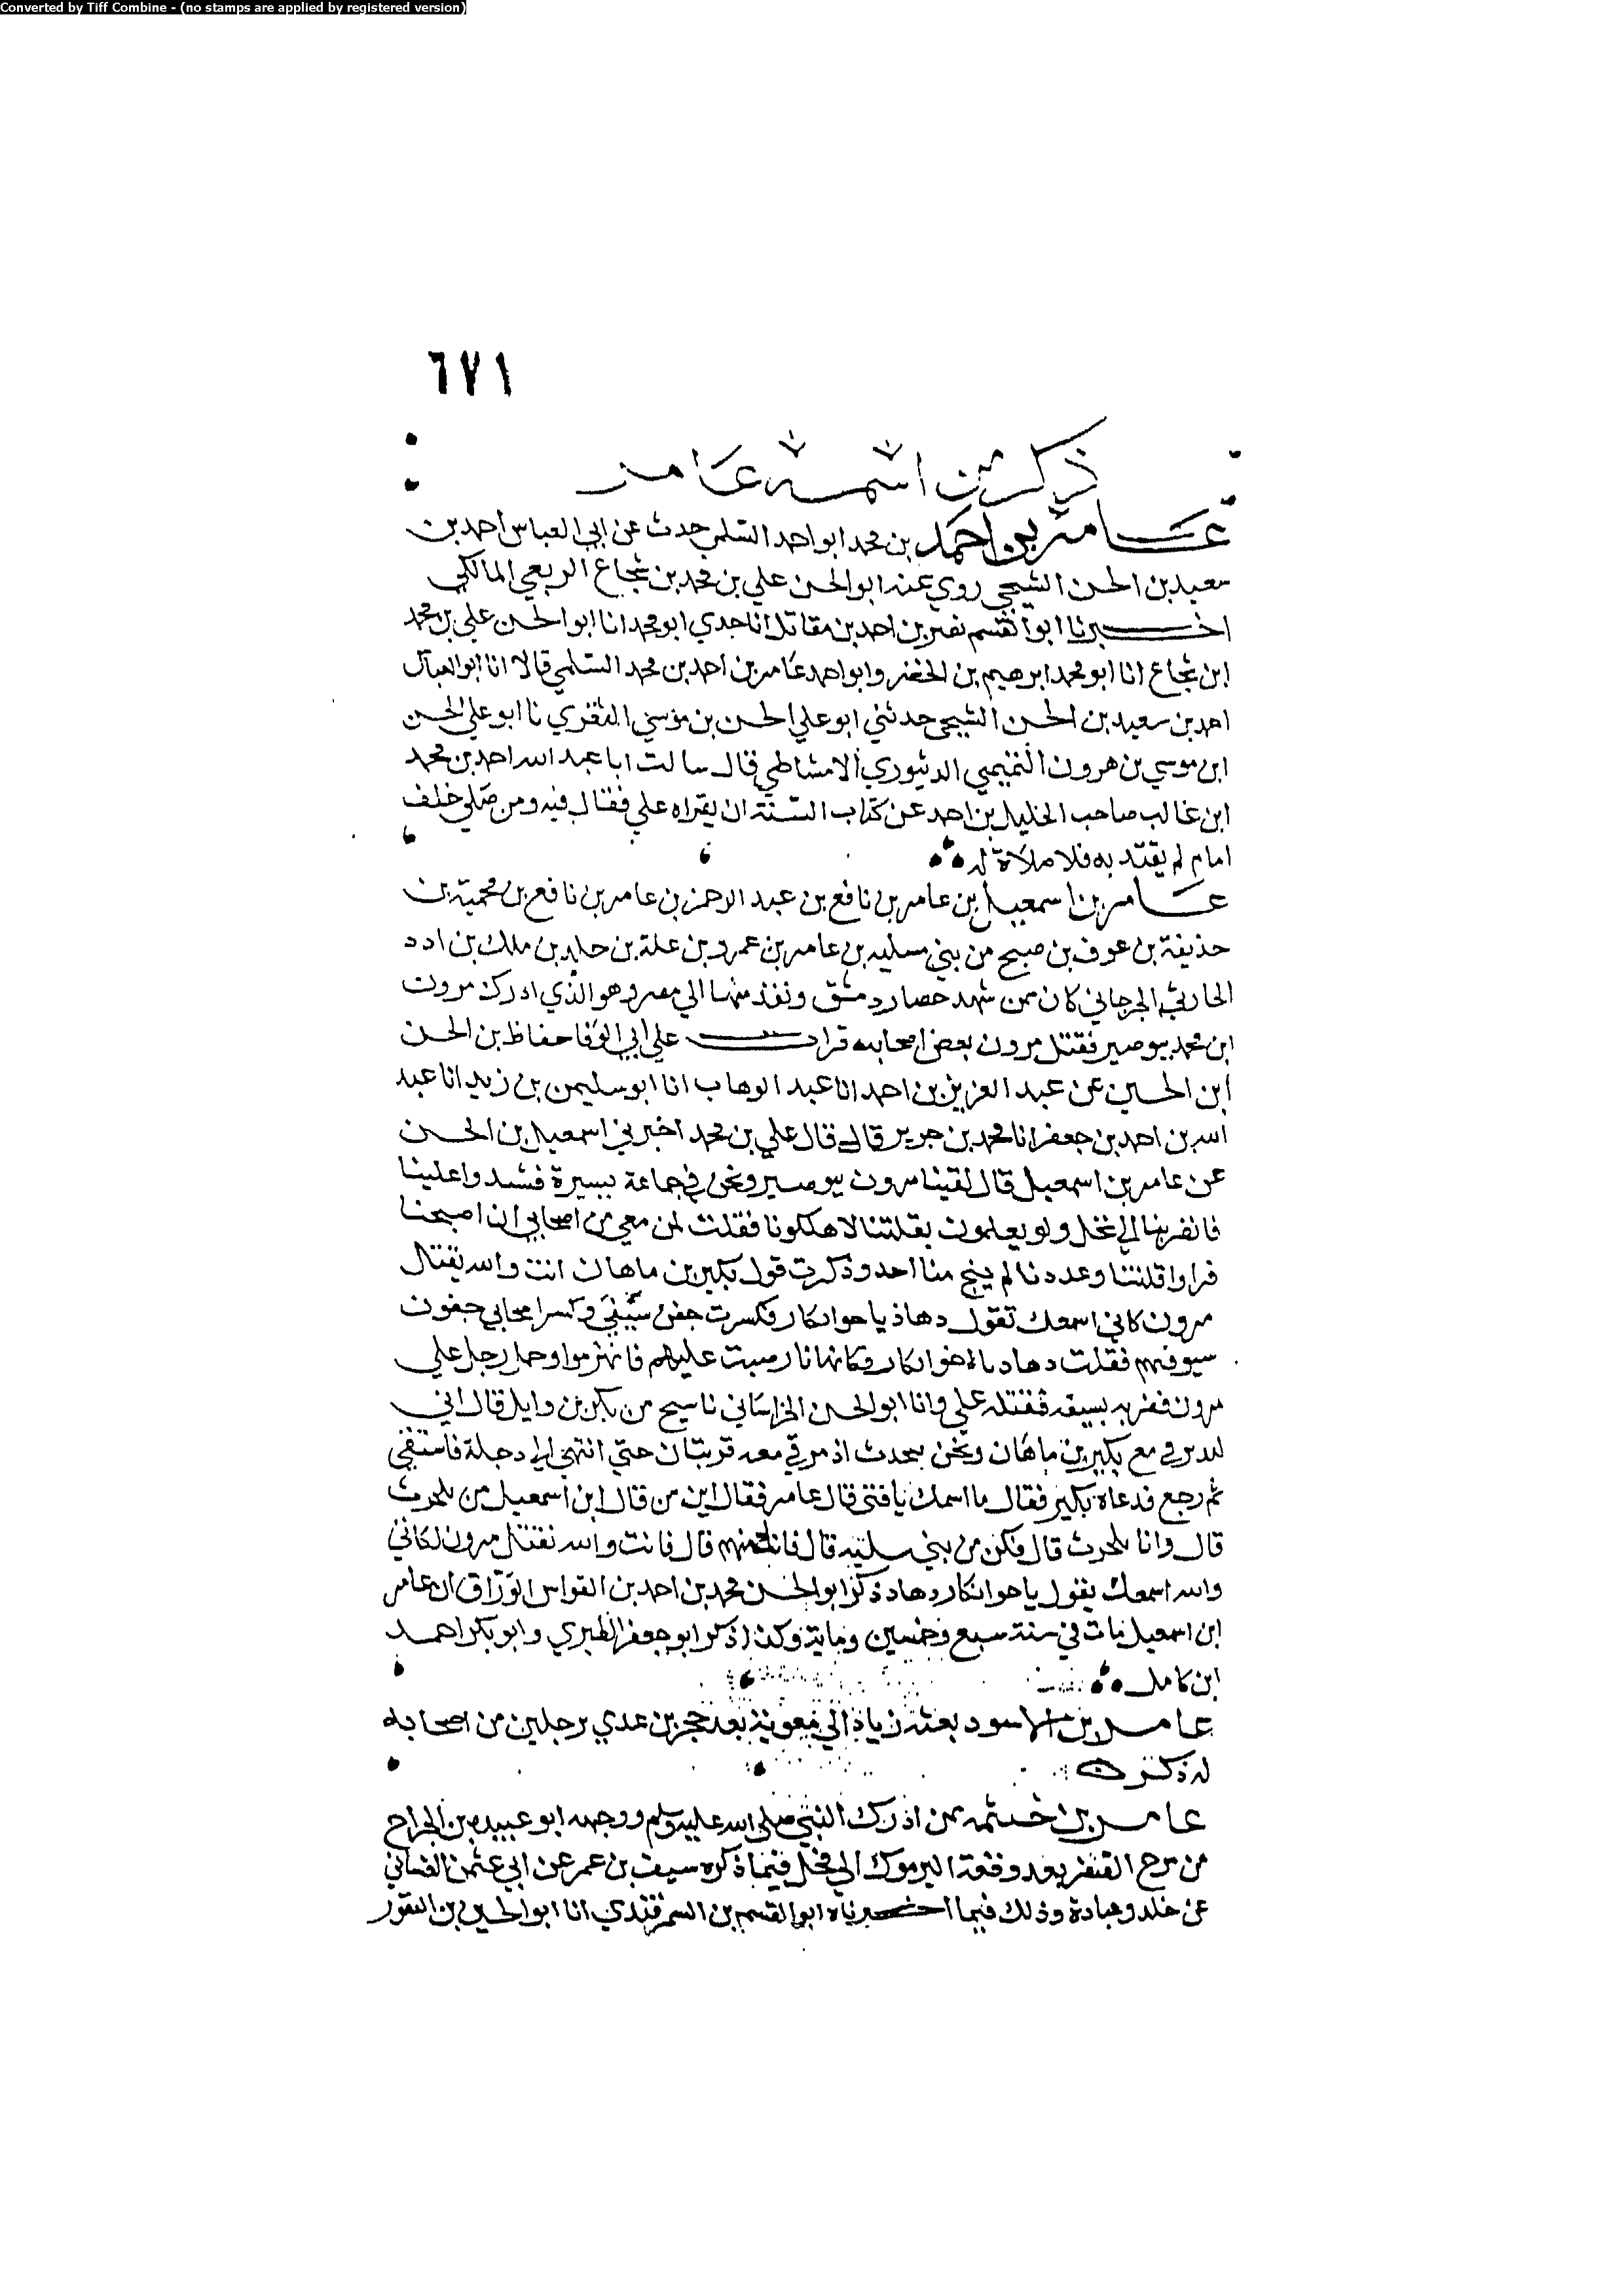 Converted by Tiff Combine - (no stamps are applied by registered version)
٦٧١
ذكر من اسمه عامر
عامر بن احمد بن محمد ابو احمد السلمي حدث عن ابي العباس احمد بن
سعيد بن الحسن الشيحي روي عنه ابو الحسن علي بن محمد بن شجاع الربعي المالكي
اخبرنا ابو القسم نصر بن احمد بن مقاتل انا جدي ابو محمد انا ابو الحسن علي بن محمد
ابن شجاع انا ابو محمد ابرهيم بن الخضر وابو احمد عامر بن احمد بن محمد السلمي قالا انا ابو العباس
احمد بن سعيد بن الحسن الشيحي حدثني ابو علي الحسن بن موسي الثغري نا ابو علي الحسن
ابن موسي بن هرون التميمي الدينوري الامشاطي قال سالت ابا عبد الله احمد بن محمد
ابن غالب صاحب الخليل بن احمد عن كتاب السنة ان يقراه علي فقال فيه ومن صلي خلف
امام لم يقتد به فلا صلاة له
عامر بن اسمعيل بن عامر بن نافع بن عبد الرحمن بن عامر بن نافع بن محمية بن
حذيفة بن عوف بن صبيح من بني مسليه بن عامر بن عمرو بن علة بن جلد بن ملك بن ادد
الحارثي الجرجاني كان ممن شهد حصار دمشق ونفذ منها الي مصر وهو الذي ادرك مرون
ابن محمد ببوصير فقتل مرون بعض اصحابه قرات علي ابي الوفا حفاظ بن الحسن
ابن الحسين عن عبد العزيز بن احمد انا عبد الوهاب انا ابو سليمن بن زيد انا عبد
الله بن احمد بن جعفر انا محمد بن جرير قال قال علي بن محمد اخبرني اسمعيل بن الحسن
عن عامر بن اسمعيل قال لقينا مرون ببوصير ونحن في جماعة يسيرة فشدوا علينا
فانضربنا الي نخل ولو يعلمون بقلتنا لاهلكونا فقلت لمن معي من اصحابي ان اصبحنا
فراوا قلتنا وعددنا لم ينج منا احد وذكرت قول بكير بن ماهان انت والله تقتل
مرون كاني اسمعك تقول دهاذ يا جوانكار فكسرت جفن سيفي وكسر اصحابي جفون
سيوفهم فقلت دهاد يا جوانكار فكانها نار صبت عليهم فانهزموا وحمل رجل علي
مرون فضربه بسيفه فقتله علي وانا ابو الحسن الخراساني نا شيخ من بكر بن وايل قال اني
لبدير في مع بكير بن ماهان ونحن نتحدث اذ مر فتي معه قربتان حتي انتهي الي دجلة فاستقي
ثم رجع فدعاه بكير فقال ما اسمك يا فتي قال عامر فقال ابن من قال ابن اسمعيل من بلحرث
قال وانا بلحرث قال فكن من بني مسليه قال فانا منهم قال فانت والله تقتل مرون لكاني
والله اسمعك يقول يا جوانكار دهاد ذكر ابو الحسن محمد بن احمد بن القواس الوراق ان عامر
ابن اسمعيل مات في سنة سبع وخمسين وماية وكذا ذكر ابو جعفر الطبري وابو بكر احمد
ابن كامل
عامر بن الاسود بعثه زياد الي معوية بعد حجر بن عدي برجلين من اصحابه
له ذكر
عامر بن خثمه ممن ادرك النبي صلي الله عليه وسلم ووجهه ابو عبيده بن الجراح
من مرج الصفر بعد وقعة اليرموك الي فحل فيما ذكره سيف بن عمر عن ابي عثمن الغساني
عن خلد وعبادة وذلك فيما اخبرناه ابو القسم بن السمرقندي انا ابو الحسين بن النقور